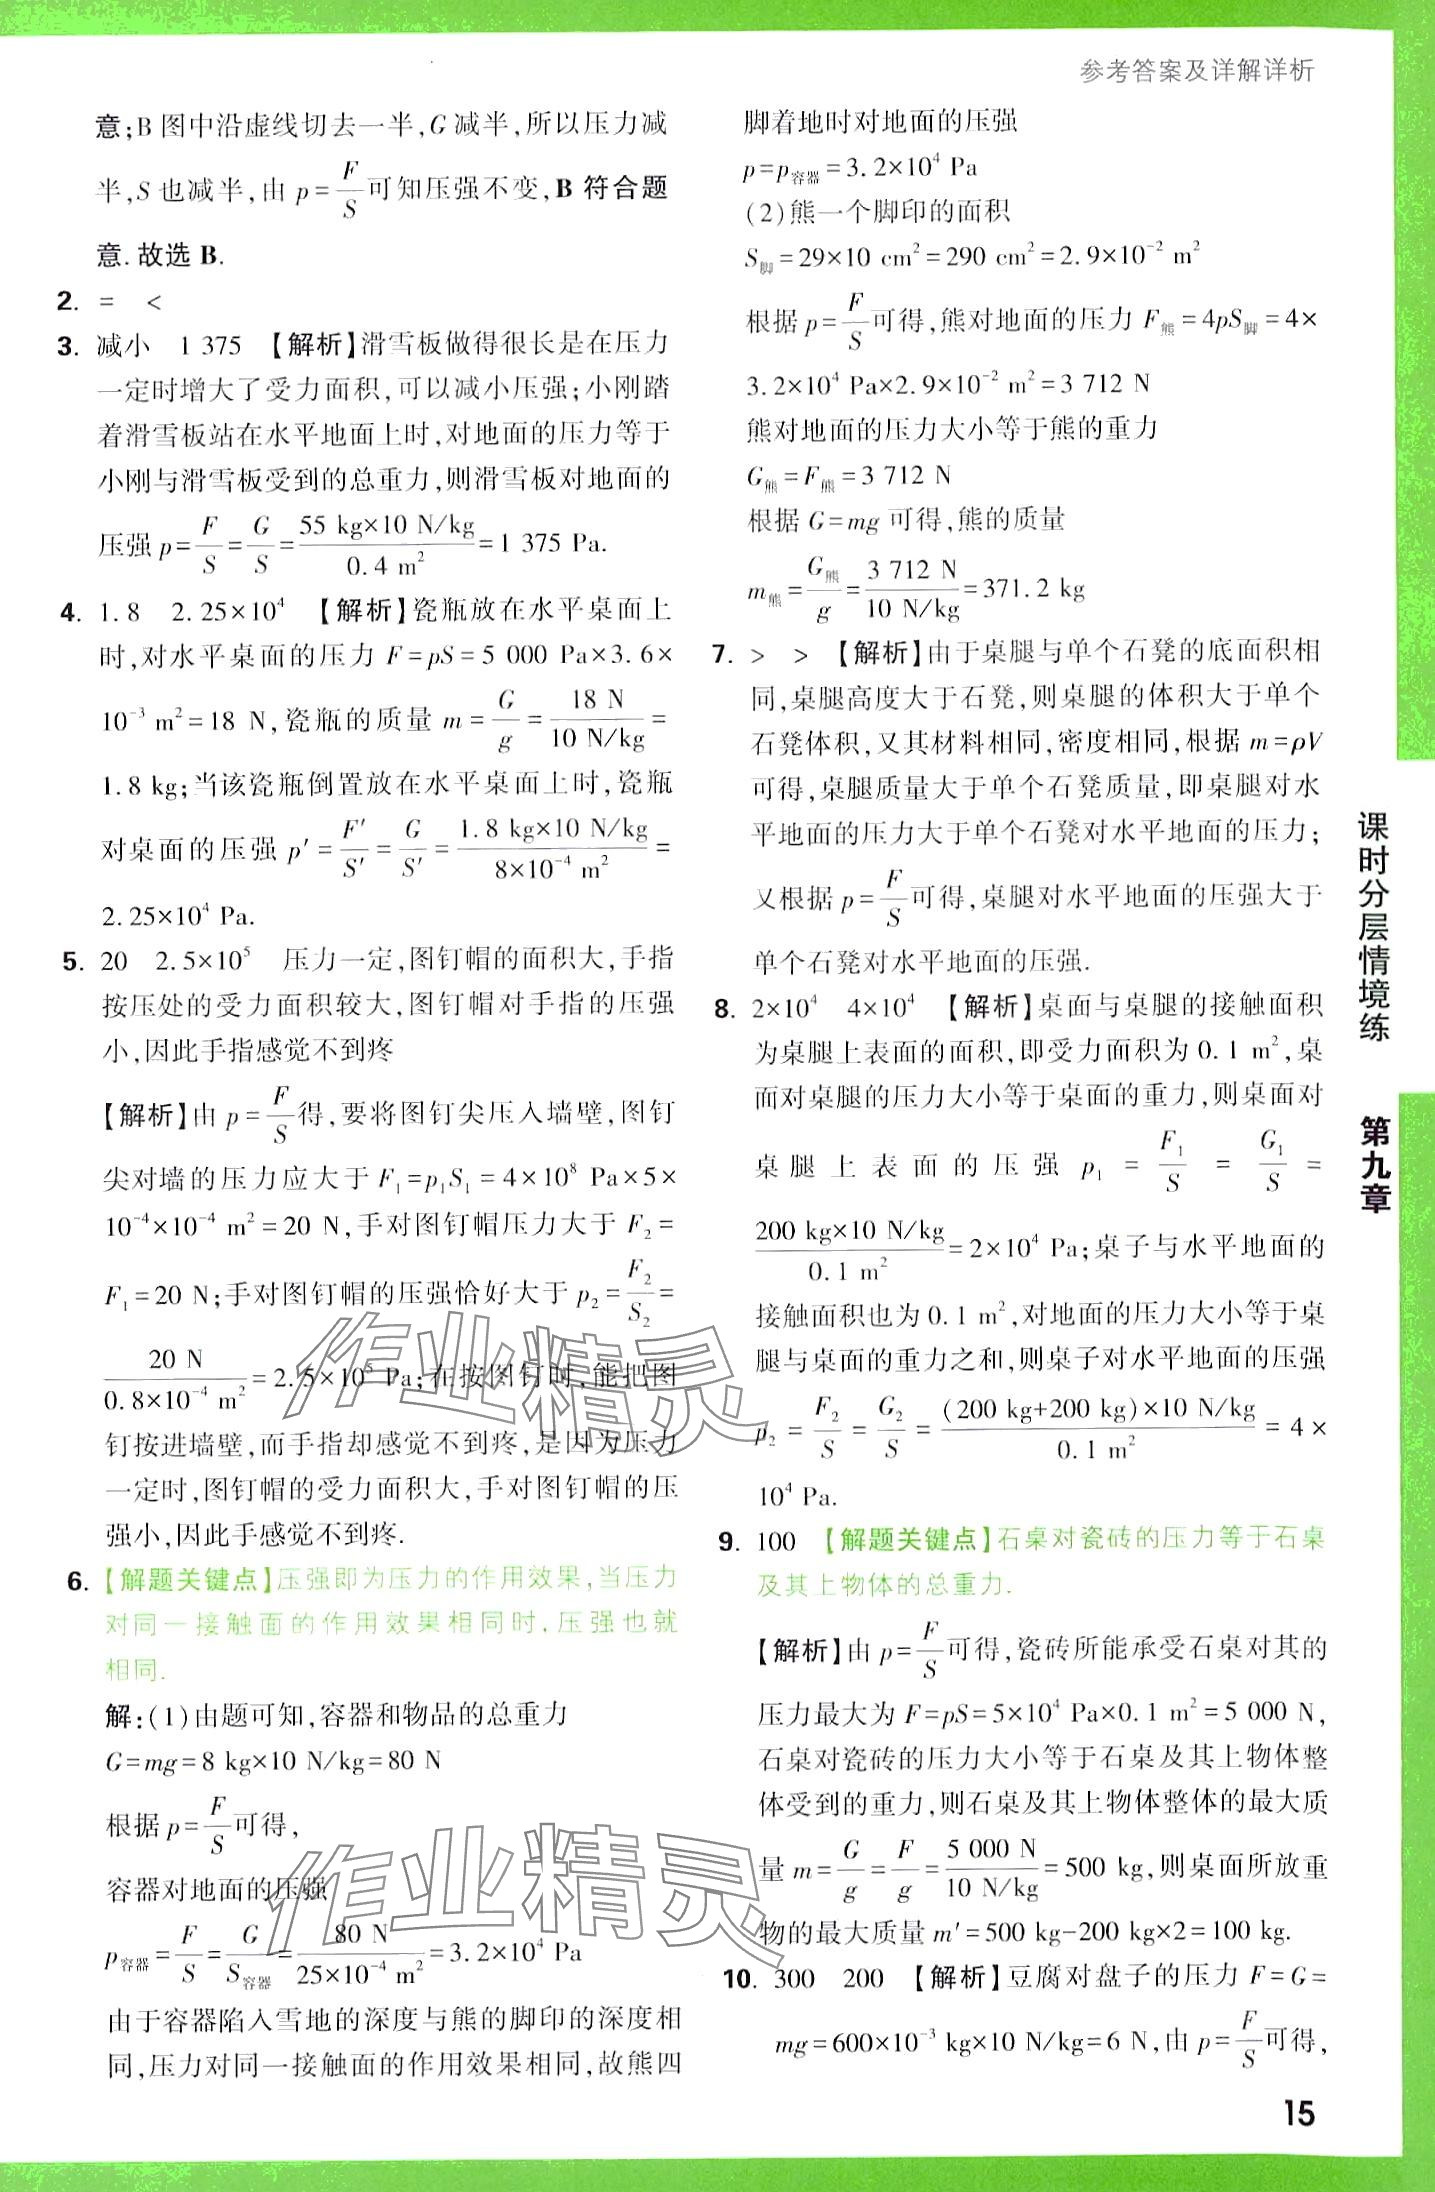 参考答案及详解详析
意;B 图中沿虚线切去一半,G 减半,所以压力减
半,S 也减半,由 p=F/S可知压强不变,B 符合题
意.故选 B.
2. = <
3. 减小 1 375 【解析】滑雪板做得很长是在压力
一定时增大了受力面积,可以减小压强;小刚踏
着滑雪板站在水平地面上时,对地面的压力等于
小刚与滑雪板受到的总重力,则滑雪板对地面的
压强 p=F/S=G/S=55 kg×10 N/kg/0.4 m²=1 375 Pa.
4. 1.8 2.25×10⁴ 【解析】瓷瓶放在水平桌面上
时,对水平桌面的压力 F=pS=5 000 Pa×3.6×
10⁻³ m²=18 N,瓷瓶的质量 m=G/g=18 N/10 N/kg=
1.8 kg;当该瓷瓶倒置放在水平桌面上时,瓷瓶
对桌面的压强 p′=F′/S′=G/S′=1.8 kg×10 N/kg/8×10⁻⁴ m²=
2.25×10⁴ Pa.
5. 20 2.5×10⁵ 压力一定,图钉帽的面积大,手指
按压处的受力面积较大,图钉帽对手指的压强
小,因此手指感觉不到疼
【解析】由 p=F/S得,要将图钉尖压入墙壁,图钉
尖对墙的压力应大于 F₁=p₁S₁=4×10⁸ Pa×5×
10⁻⁴×10⁻⁴ m²=20 N,手对图钉帽压力大于 F₂=
F₁=20 N;手对图钉帽的压强恰好大于 p₂=F₂/S₂=
20 N/0.8×10⁻⁴ m²=2.5×10⁵ Pa;在按图钉时,能把图
钉按进墙壁,而手指却感觉不到疼,是因为压力
一定时,图钉帽的受力面积大,手对图钉帽的压
强小,因此手感觉不到疼.
6. 【解题关键点】压强即为压力的作用效果,当压力
对同一接触面的作用效果相同时,压强也就
相同.
解:(1)由题可知,容器和物品的总重力
G=mg=8 kg×10 N/kg=80 N
根据 p=F/S可得,
容器对地面的压强
p容器=F/S=G/S容器=80 N/25×10⁻⁴ m²=3.2×10⁴ Pa
由于容器陷入雪地的深度与熊的脚印的深度相
同,压力对同一接触面的作用效果相同,故熊四
脚着地时对地面的压强
p=p容器=3.2×10⁴ Pa
(2)熊一个脚印的面积
S脚=29×10 cm²=290 cm²=2.9×10⁻² m²
根据 p=F/S可得,熊对地面的压力 F熊=4pS脚=4×
3.2×10⁴ Pa×2.9×10⁻² m²=3 712 N
熊对地面的压力大小等于熊的重力
G熊=F熊=3 712 N
根据 G=mg 可得,熊的质量
m熊=G熊/g=3 712 N/10 N/kg=371.2 kg
7. > > 【解析】由于桌腿与单个石凳的底面积相
同,桌腿高度大于石凳,则桌腿的体积大于单个
石凳体积,又其材料相同,密度相同,根据 m=ρV
可得,桌腿质量大于单个石凳质量,即桌腿对水
平地面的压力大于单个石凳对水平地面的压力;
又根据 p=F/S可得,桌腿对水平地面的压强大于
单个石凳对水平地面的压强.
8. 2×10⁴ 4×10⁴ 【解析】桌面与桌腿的接触面积
为桌腿上表面的面积,即受力面积为 0.1 m²,桌
面对桌腿的压力大小等于桌面的重力,则桌面对
桌腿上表面的压强 p₁=F₁/S=G₁/S=
200 kg×10 N/kg/0.1 m²=2×10⁴ Pa;桌子与水平地面的
接触面积也为 0.1 m²,对地面的压力大小等于桌
腿与桌面的重力之和,则桌子对水平地面的压强
p₂=F₂/S=G₂/S=(200 kg+200 kg)×10 N/kg/0.1 m²=4×
10⁴ Pa.
9. 100 【解题关键点】石桌对瓷砖的压力等于石桌
及其上物体的总重力.
【解析】由 p=F/S可得,瓷砖所能承受石桌对其的
压力最大为 F=pS=5×10⁴ Pa×0.1 m²=5 000 N,
石桌对瓷砖的压力大小等于石桌及其上物体整
体受到的重力,则石桌及其上物体整体的最大质
量 m=G/g=F/g=5 000 N/10 N/kg=500 kg,则桌面所放重
物的最大质量 m′=500 kg-200 kg×2=100 kg.
10. 300 200 【解析】豆腐对盘子的压力 F=G=
mg=600×10⁻³ kg×10 N/kg=6 N,由 p=F/S可得,
课时分层情境练 第九章
15
作业精灵
作业精灵